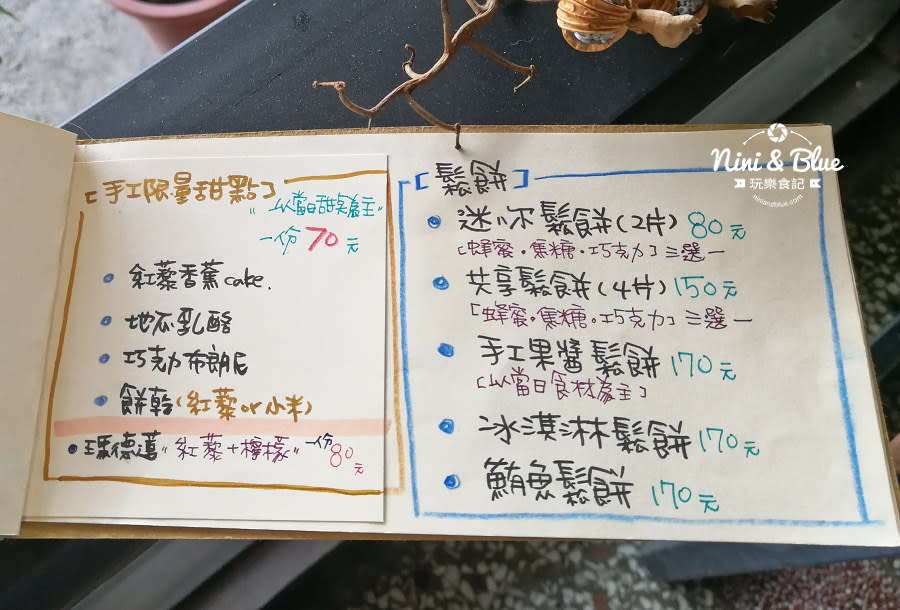 [手工限量甜點]
"以當日甜點為主"
一份 70 元
紅藜香蕉 cake.
地瓜乳酪
巧克力布朗尼
餅乾(紅藜 or 小米)
瑪德蓮"紅藜+檸檬" 一份 80 元
[鬆餅]
迷你鬆餅(2片) 80元
「蜂蜜·焦糖·巧克力」三選一
共享鬆餅(4片) 150元
「蜂蜜·焦糖·巧克力」三選一
手工果醬鬆餅 170元
「以當日食材為主」
冰淇淋鬆餅 170元
鮪魚鬆餅 170元
Nini & Blue
玩樂食記
niniandblue.com